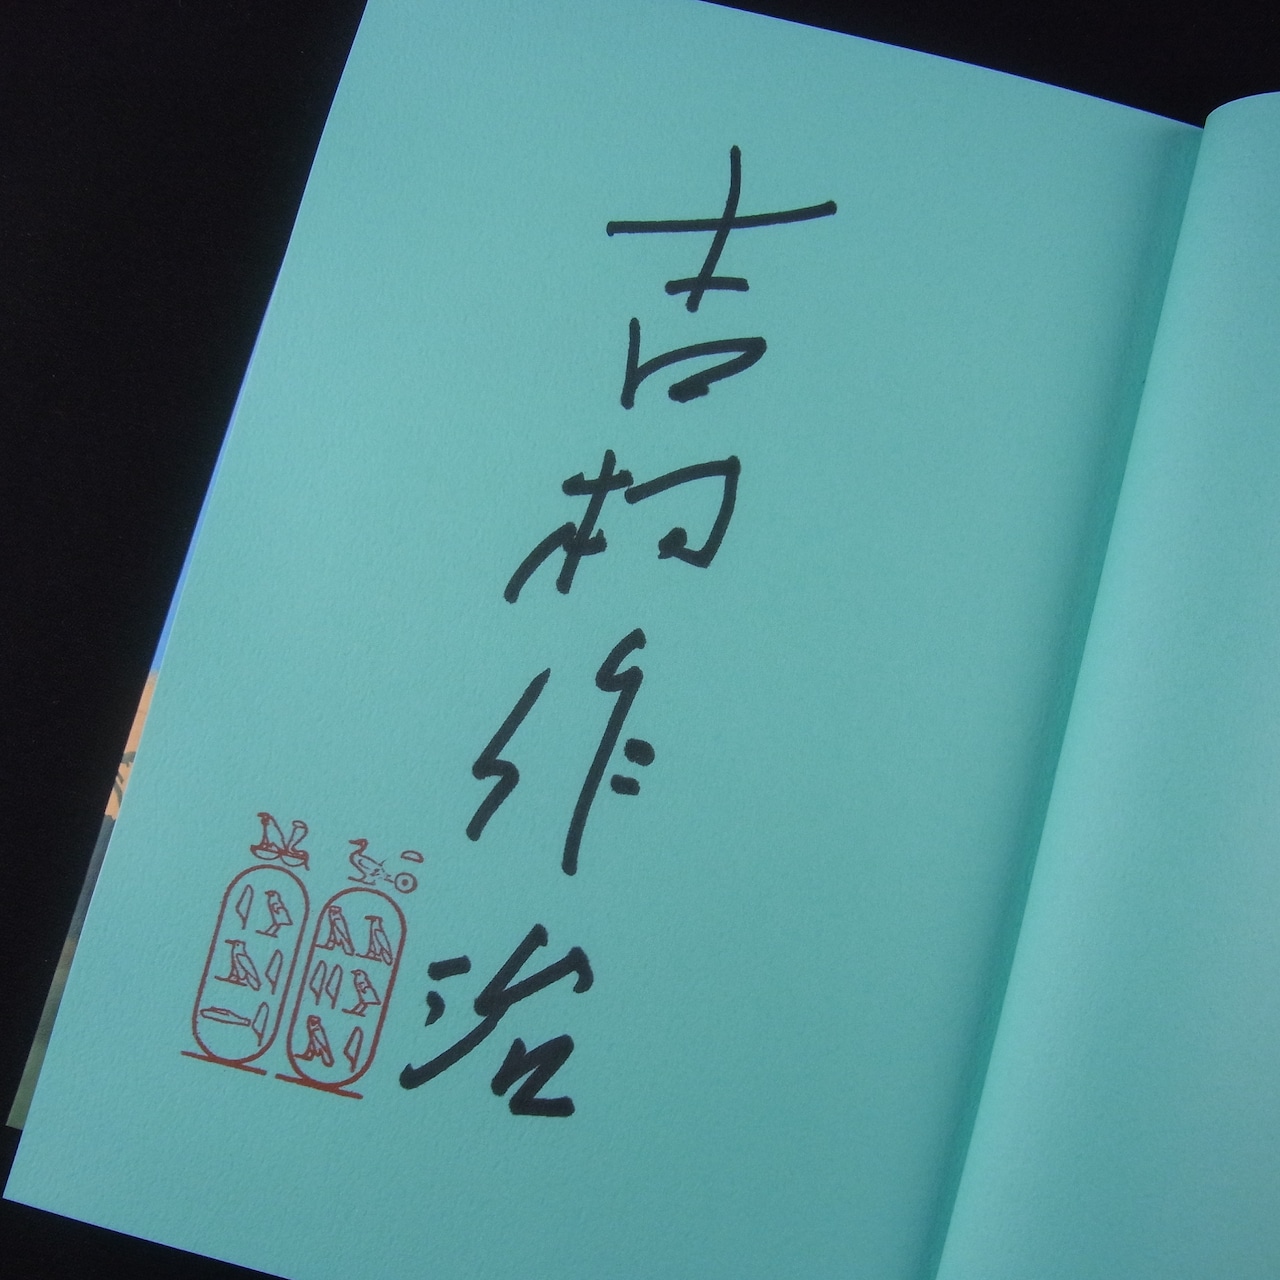 吉村作治